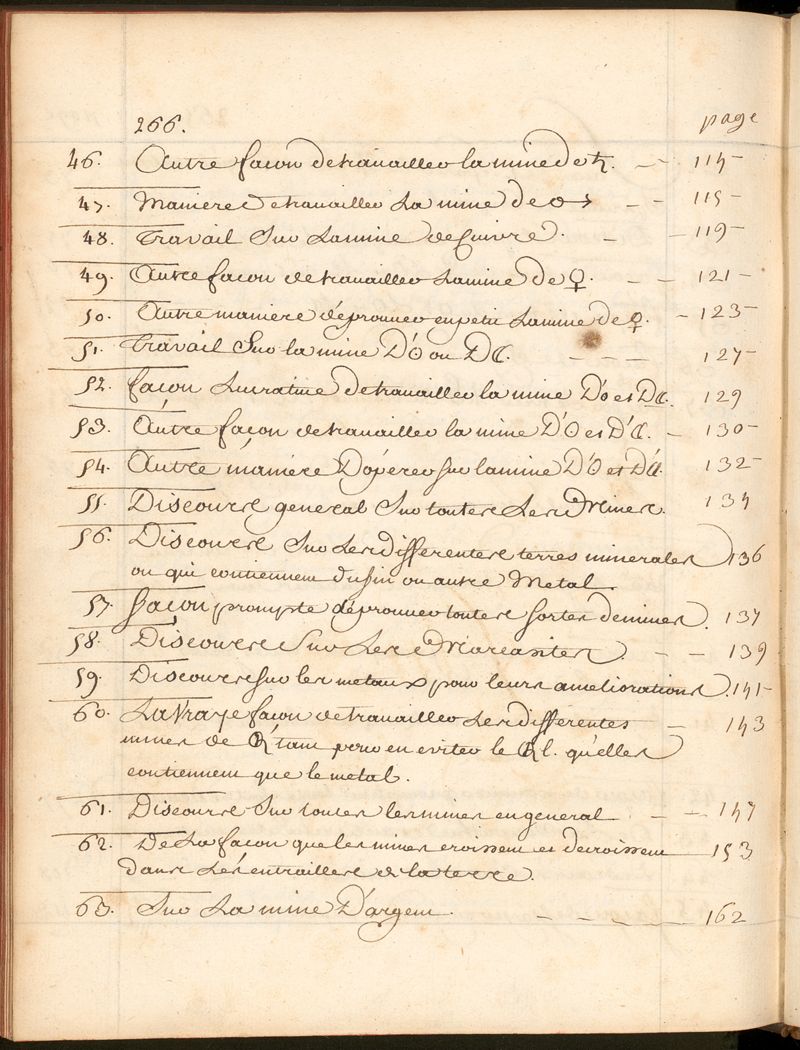 266. page
46. Autre façon de trauailler la mine de ♄. -- 114-
47. Maniere de trauailler La mine de ♂ -- 115-
48. Travail Sur La mine de Cuivre. - -119-
49. Autre façon de trauailler La mine de ♀. -- 121-
50. Autre maniere d'éprouuer en petit La mine de ♀. - 123-
51. Travail Sur la mine D'☉ ou D☾. --- 127-
52. façon de trauailler la mine D'☉ et D☾. 129
53. Autre façon de trauailler la mine D'☉ et D'☾. - 130-
54. Autre maniere D'opérer sur la mine D'☉ et D'☾. 132-
55. Discours general Sur toutes Les Mines. 134
56. Discours Sur Les differentes terres minerales 136
ou qui contiennent du fin ou autre Metal
57. façon prompte d'éprouuer toutes sortes de mines. 137
58. Discours Sur Les Marcasites. -- 139
59. Discours sur les metaux pour leurs ameliorations. 141-
60. La Vraye façon de trauailler Les differentes - 143
mines de tant pour en eviter le qu'elles
contiennent que le metal.
61. Discours Sur toutes les mines en general -- 147
62. De La façon que les mines croissent et decroissent 153
dans Les entrailles de la terre.
63. Sur La mine D'argent. ----- 162